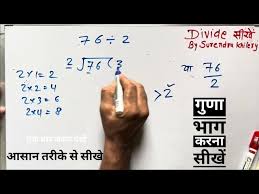 76÷2
Divide सीखें
By Surendra Khilery
2 √76 (3
2×1=2
2×2=4
2×3=6
2×4=8
या 76
2
>2
गुणा
भाग
करना
सीखें
आसान तरीके से सीखे